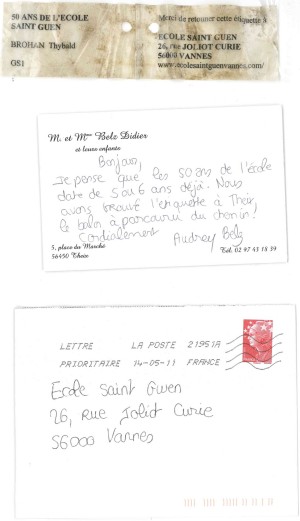 50 ANS DE L'ECOLE
SAINT GUEN
BROHAN Thybald
GS1
Merci de retourner cette étiquette à
ECOLE SAINT GUEN
26, rue JOLIOT CURIE
56000 VANNES
www.ecolesaintguenvannes.com/
M. et Mme Belz Didier
et leurs enfants
Bonjour,
Je pense que les 50 ans de l'école
date de 5 ou 6 ans déjà. Nous
avons trouvé l'enquette à Theix,
le balon a parcouru du chemin!
Cordialement Audrey Belz
5, place du Marché
56450 Theix
Tél. 02 97 43 18 39
LETTRE LA POSTE 21951A
PRIORITAIRE 14-05-11 FRANCE
Ecole Saint Guen
26, Rue Joliot Curie
56000 Vannes